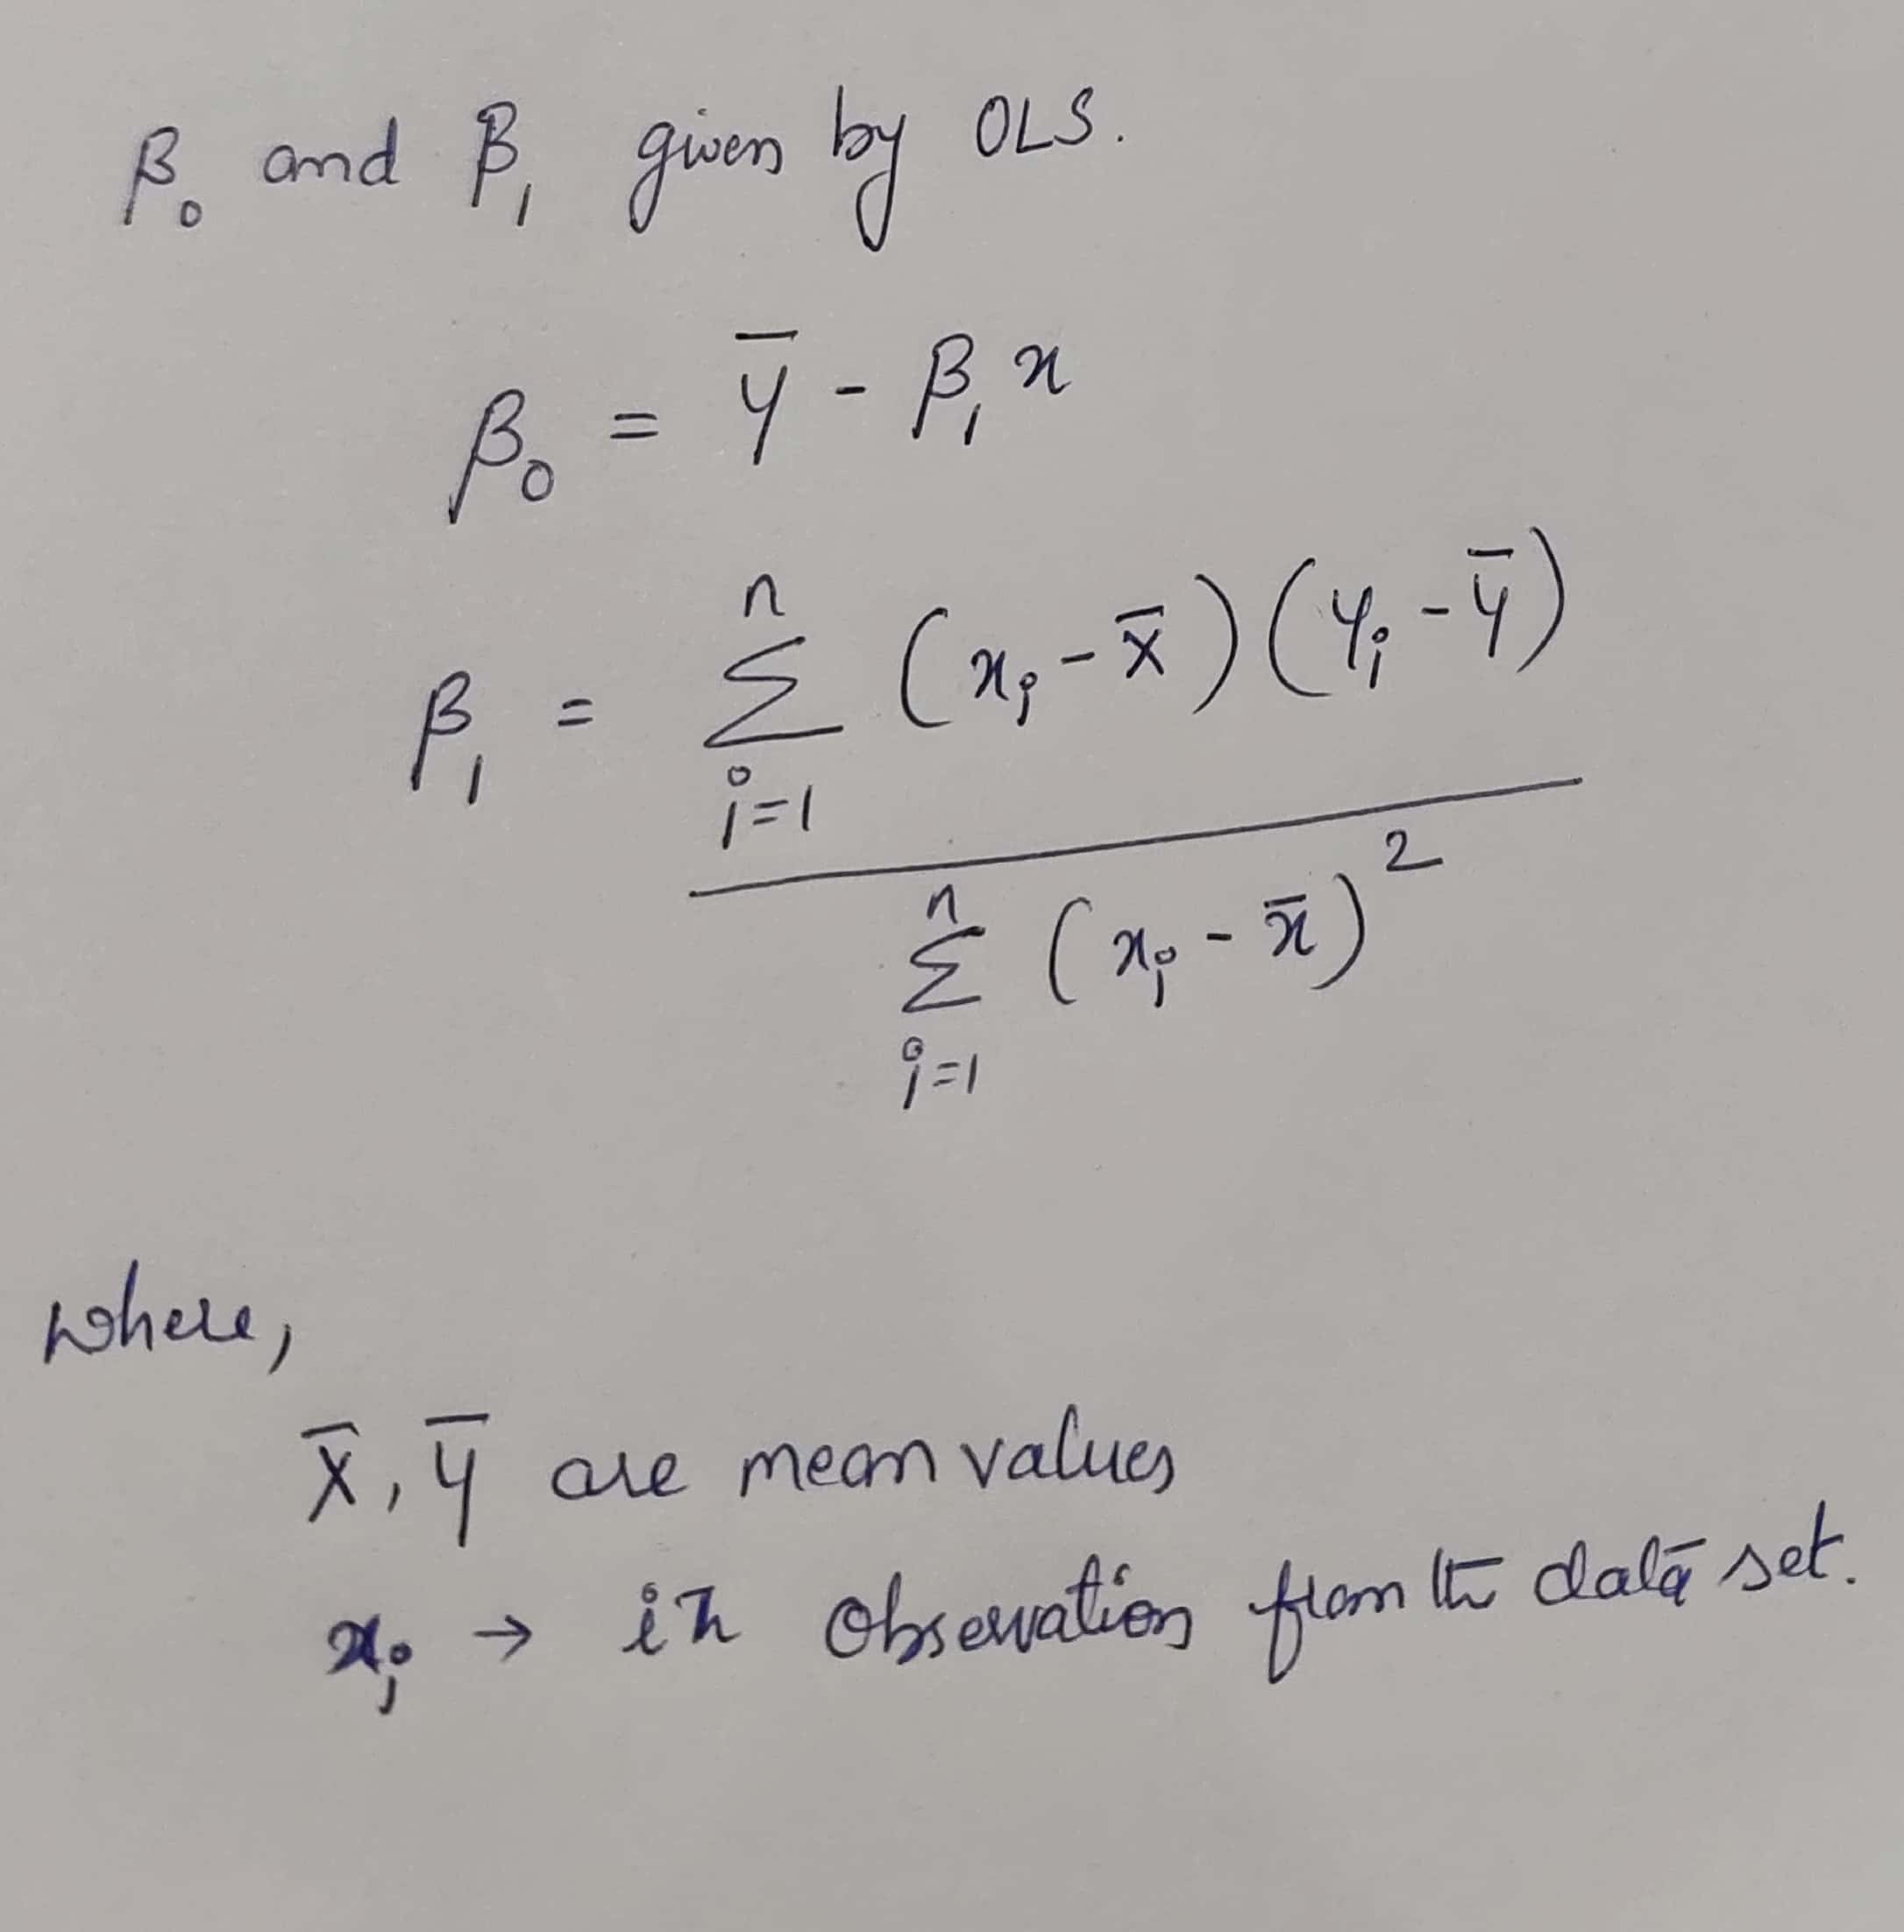 β₀ and β₁ given by OLS.
β₀ = ȳ - β₁x
β₁ = n∑i=1 (xᵢ - x̄)(yᵢ - ȳ)
n∑i=1 (xᵢ - x̄)²
where,
x̄, ȳ are mean values
xᵢ → ith observation from the data set.